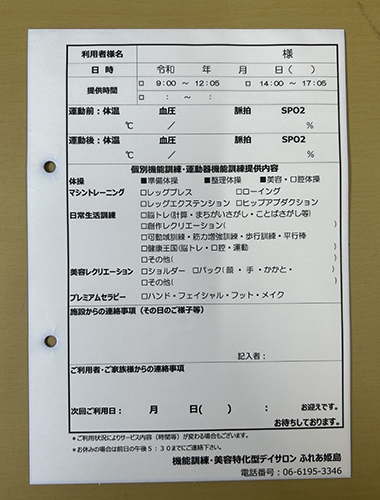 利用者様名 様
日 時 令和 年 月 日( )
提供時間 □ 9:00 ~ 12:05 □ 14:00 ~ 17:05
□ : ~ :
運動前:体温 血圧 脈拍 SPO2
℃ / %
運動後:体温 血圧 脈拍 SPO2
℃ / %
個別機能訓練・運動器機能訓練提供内容
体操 ■準備体操 ■整理体操 ■美容・口腔体操
マシントレーニング □レッグプレス □ローイング
□レッグエクステンション □ヒップアブダクション
日常生活訓練 □脳トレ(計算・まちがいさがし・ことばさがし等)
□創作レクリエーション( )
□可動域訓練・筋力増強訓練・歩行訓練・平行棒
□健康王国(脳トレ・口腔・運動)
□その他( )
美容レクリエーション □ショルダー □パック(顔・手・かかと・ )
□その他( )
プレミアムセラピー □ハンド・フェイシャル・フット・メイク
施設からの連絡事項(その日のご様子等)
記入者:
ご利用者・ご家族様からの連絡事項
次回ご利用日: 月 日( ) : お迎えです。
お待ちしております。
*ご利用状況によりサービス内容(時間等)が変わる場合もございます。
*お休みの場合は前日の午後5:30までにご連絡
機能訓練・美容特化型デイサロン ふれあ姫島
電話番号:06-6195-3346